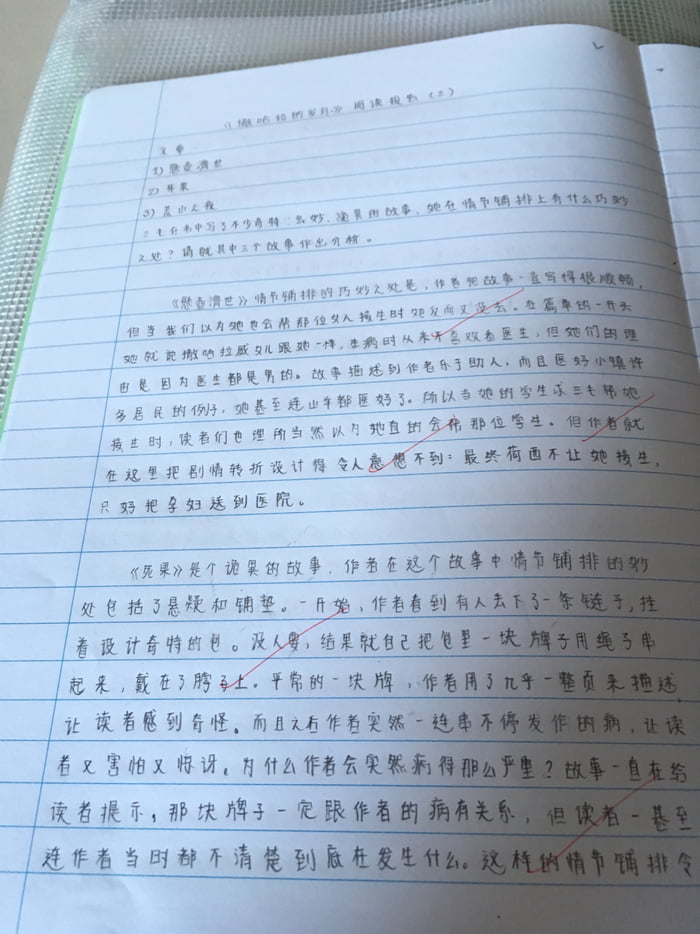 《撒哈拉的岁月》阅读报告（二）
文章
1) 悬壶濟世
2) 死果
3) 荒山之夜
三毛在书中写了不少奇特、幺妙、诡異的故事，她在情节铺排上有什么巧妙
之处？请就其中三个故事作出分析。
《悬壶濟世》情节铺排的巧妙之处是，作者把故事一直写得很顺畅，
但当我们以为她也会帮那位女人接生时她反而又没去。在篇章的一开头
她就说撒哈拉威女儿跟她一样，生病时从来不喜欢看医生，但她们的理
由是因为医生都是男的。故事描述到作者乐于助人，而且医好小镇许
多居民的例子，她甚至连山羊都医好了。所以当她的学生求三毛帮她
接生时，读者们也理所当然以为她真的会帮那位学生。但作者就
在这里把剧情转折设计得令人意想不到：最终荷西不让她接生，
只好把孕妇送到医院。
《死果》是个诡異的故事，作者在这个故事中情节铺排的妙
处包括了悬疑和铺垫。一开始，作者看到有人丢下了一条链子，挂
着设计奇特的包。没人要，结果就自己把包里一块牌子用绳子串
起来，戴在了脖子上。平常的一块牌，作者用了几乎一整页来描述，
让读者感到奇怪。而且之后作者突然一连串不停发作的病，让读
者又害怕又惊讶。为什么作者会突然病得那么严重？故事一直在给
读者提示，那块牌子一定跟作者的病有关系，但读者一甚至
连作者当时都不清楚到底在发生什么。这样的情节铺排令